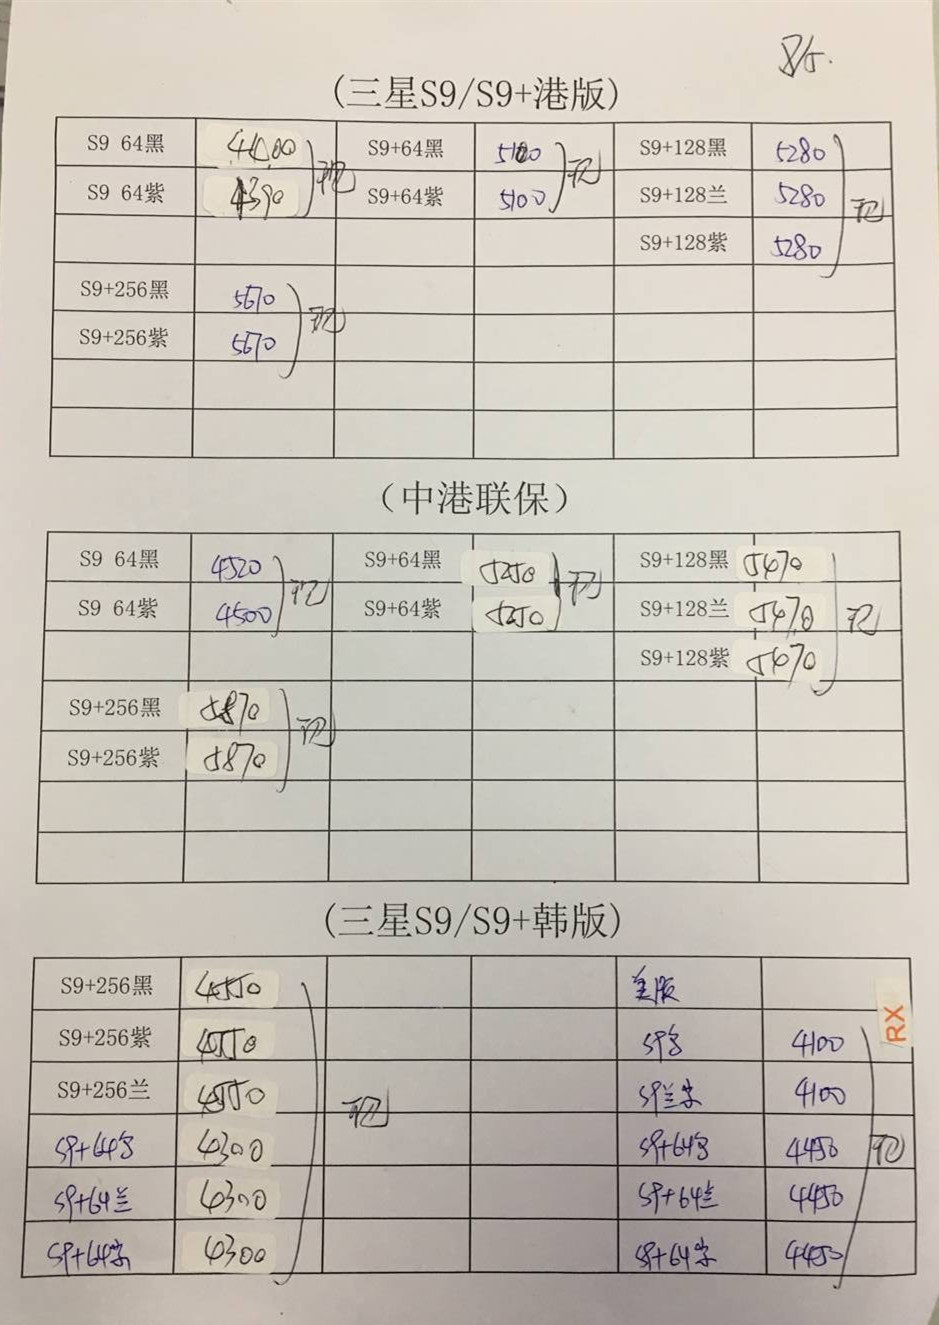 8/5.
(三星S9/S9+港版)
S9 64黑 S9+64黑 5100 S9+128黑 5280
S9 64紫 4390 现 S9+64紫 5100 现 S9+128兰 5280 现
S9+128紫 5280
S9+256黑 5670 现
S9+256紫 5670
(中港联保)
S9 64黑 4520 现 S9+64黑 5250 现 S9+128黑 5470
S9 64紫 4500 S9+64紫 5250 S9+128兰 5470 现
S9+128紫 5470
S9+256黑 5870 现
S9+256紫 5870
(三星S9/S9+韩版)
S9+256黑 4550 美版
S9+256紫 4550 4100 RX
S9+256兰 4550 现 4100
4300 4450 现
S9+64兰 4300 S9+64兰 4450
4300 4450